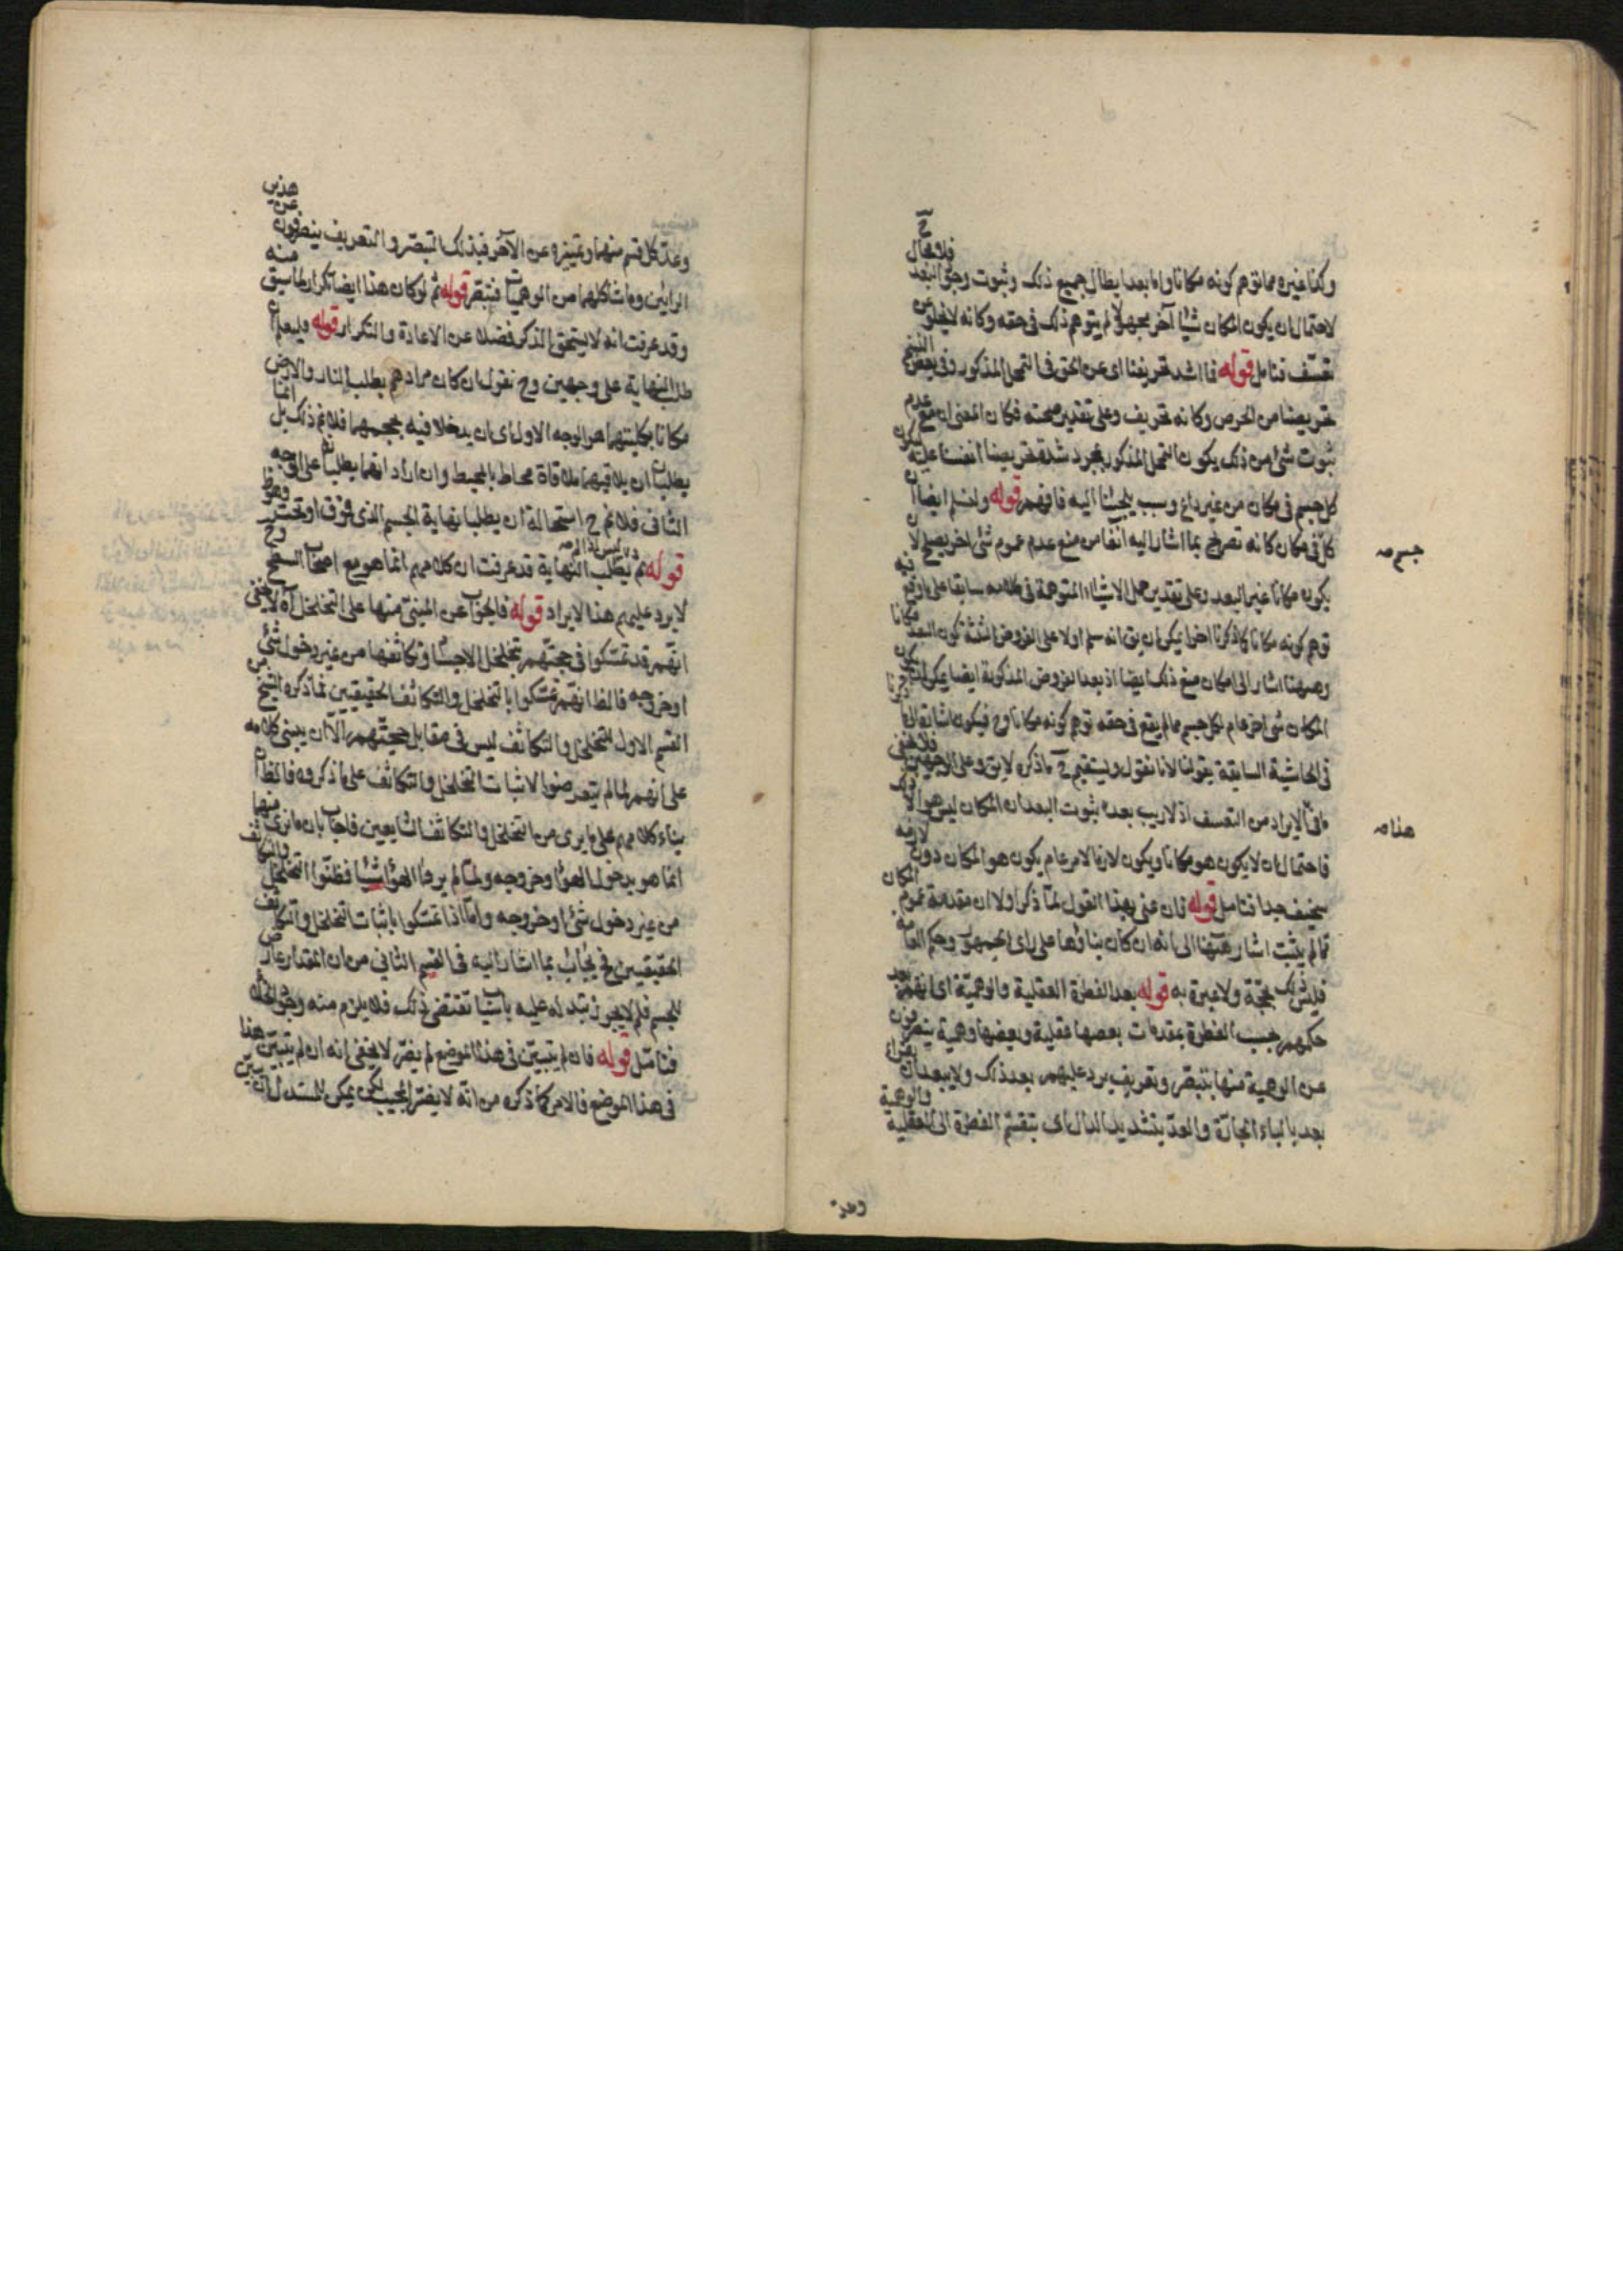 وكذا غيره مما توهم كونه مكانا واما بعد ابطال جميع ذلك وثبوت وجود البعد فلا مجال ح
لاحتمال ان يكون المكان شيئا آخر مجهولا لم يتوهم ذلك في حقه وكانه لا يخلو عن
تعسف فتامل قوله فما اشد تحريفنا اى عن الحق في التمحل المذكور وفي بعض النسخ
تحريصنا من الحرص وكانه تحريف وعلى تقدير صحته فكان المعنى ان مع عدم
ثبوت شئ من ذلك يكون التمحل المذكور بمجرد شدة تحريصنا انفسنا على كون
كل جسم في مكان من غير داع وسبب يلجئنا اليه فافهم قوله ولنسلم ايضا ان
كلا في مكان كانه تصريح بما اشار اليه انفا من منع عدم عموم شئ اخر يصلح لان
جسم صه
يكون مكانا غير البعد وعلى تقدير حمل الاشياء المتوهمة في كلامه سابقا على ما وقع فيه
توهم كونه مكانا كما ذكرنا اخرا يمكن ان يق انه سلم اولا على الفروض الثلثة كون البعد مكانا
وههنا اشار الى امكان منع ذلك ايضا اذ بعد الفروض المذكورة ايضا يمكن ان يكون
المكان شئ اخر عام لكل جسم مما لم يقع في حقه توهم كونه مكانا وح فيكون اشارة الى ما ذكرنا
في الحاشية السابقة بقولنا لانا نقول ويستقيم ح ما ذكره لا يق وعلى الوجهين فلا يخفى
ما في الايراد من التعسف اذ لا ريب بعد ثبوت البعد ان المكان ليس هو الا ذلك
هذا صه
فاحتمال ان لا يكون هو مكانا ويكون لازما لامر عام يكون هو المكان دون لازمه
سخيف جدا فتامل قوله فان عنى بهذا القول لما ذكر اولا ان مقدمة عموم المكان
مما لم يثبت اشار ههنا الى انه ان كان بناؤها على راى الجمهور وحكم العامة
فليس ذلك بحجة ولا عبرة به قوله بعد الفطرة العقلية والوهمية اى انفهم بعد
حكمهم بحسب الفطرة بمقدمات بعضها عقلية وبعضها وهمية ينصرفون
عن الوهمية منها بتبصر وتعريف يرد عليهم بعد ذلك ولا يبعد ان يقراء
بعد بالباء الجارة والعد بتشديد الدال اى بتقسيم الفطرة الى العقلية والوهمية
وعد
وعد كل قسم منهما وتمييزه عن الآخر فبذلك التبصر والتعريف ينصرفون عن هذين
الرايين وما شاكلهما من الوهميات فتبصر قوله ثم لو كان هذا ايضا تكرار لما سبق منه
وقد عرفت انه لا يستحق الذكر فضلا عن الاعادة والتكرار قوله وليعلم ان
طلب النهاية على وجهين وح نقول ان كان مرادهم بطلب النار والارض
مكانا بكليتهما هو الوجه الاول اى ان يدخلا فيه بحجمهما فلا نم ذلك بل انما
يطلبان ان يلاقيهما ملاقاة محاط بالمحيط وان اراد انهما يطلبانه على الوجه
الثانى فلا نم ح استحالة ان يطلبا نهاية الجسم الذى فوق او تحت
قوله ثم يطلب النهاية قد عرفت ان كلامهم انما هو مع اصحاب السطح وح
لا يرد عليهم هذا الايراد قوله فالجواب عن المبنى منها على التخلخل آه لا يخفى
انهم قد تمسكوا في حجتهم بتخلخل الاجسام وتكاثفها من غير دخول شئ
او خروجه فالظ انهم تمسكوا بالتخلخل والتكاثف الحقيقيين فما ذكره الشيخ من
القسم الاول للتخلخل والتكاثف ليس في مقابل حجتهم الا ان يبنى كلامه
على انهم لما لم يتعرضوا لاثبات التخلخل والتكاثف على ما ذكروه فالظ ان
بناء كلامهم على ما يرى من التخلخل والتكاثف الشايعين فاجاب بان ما نرى منها
انما هو بدخول الهواء وخروجه ولما لم يروا الهواء شيئا فظنوا التخلخل والتكاثف
من غير دخول شئ او خروجه واما اذا تمسكوا باثبات التخلخل والتكاثف
الحقيقيين فح يجاب بما اشار اليه في القسم الثاني من ان المقدار عارض
للجسم فلم لا يجوز تبدله عليه باسباب تقتضى ذلك فلا يلزم منه وجود الخلاء
فتامل قوله فان لم يتبين في هذا الموضع لم يضر لا يخفى انه ان لم يتبين هذا
في هذا الموضع فالامر كما ذكره من انه لا يضر المجيب لكن يمكن للمستدل ان يبين